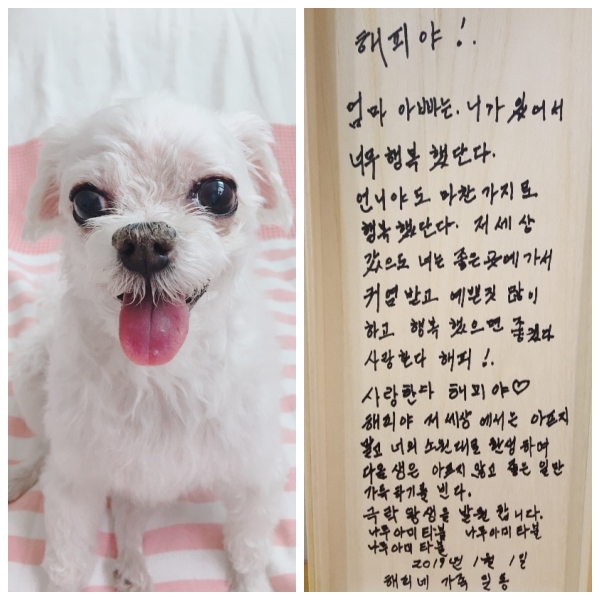 해피야!.
엄마 아빠는. 니가 있어서
너무 행복 했단다.
언니야도 마찬가지로
행복 했단다. 저 세상
갔으도 너는 좋은곳에 가서
귀염 받고 예쁜짓 많이
하고 행복 했으면 좋겠다
사랑한다 해피!.
사랑한다 해피야♡
해피야 저 세상에서는 아프지
말고 너의 소원대로 환생하여
다음 생은 아프지 않고 좋은 일만
가득하기를 빈다.
극락왕생을 발원 합니다.
나무아미타불 나무아미타불
나무아미타불
2019년 1월 1일
해피네 가족 일동